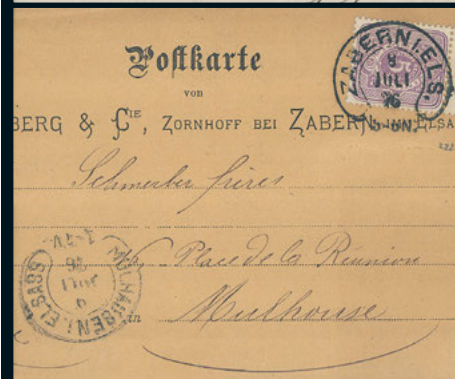 Postkarte
von
BERG & CIE, ZORNHOFF BEI ZABERN IM ELSA
ZABERN I. ELS.
8
JULI
76
5-6N.
Schmerber frères
Place de la Réunion
in Mulhouse
MÜLHAUSEN I. ELSASS
9
JULI
76